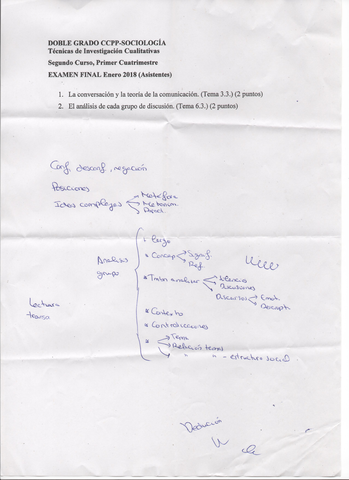 DOBLE GRADO CCPP-SOCIOLOGÍA
Técnicas de Investigación Cualitativas
Segundo Curso, Primer Cuatrimestre
EXAMEN FINAL Enero 2018 (Asistentes)
1. La conversación y la teoría de la comunicación. (Tema 3.3.) (2 puntos)
2. El análisis de cada grupo de discusión. (Tema 6.3.) (2 puntos)
Conf, desconf, negación
Posiciones
Ideas complejas
Metáfora
Metonim
Análisis
grupo
Concep
Signif
Ref
analizar
Silencios
Discusiones
Discursos
Emot
Lectura
* Contexto
* Contradicciones
* Tema
Relación temas
" " - estructura social